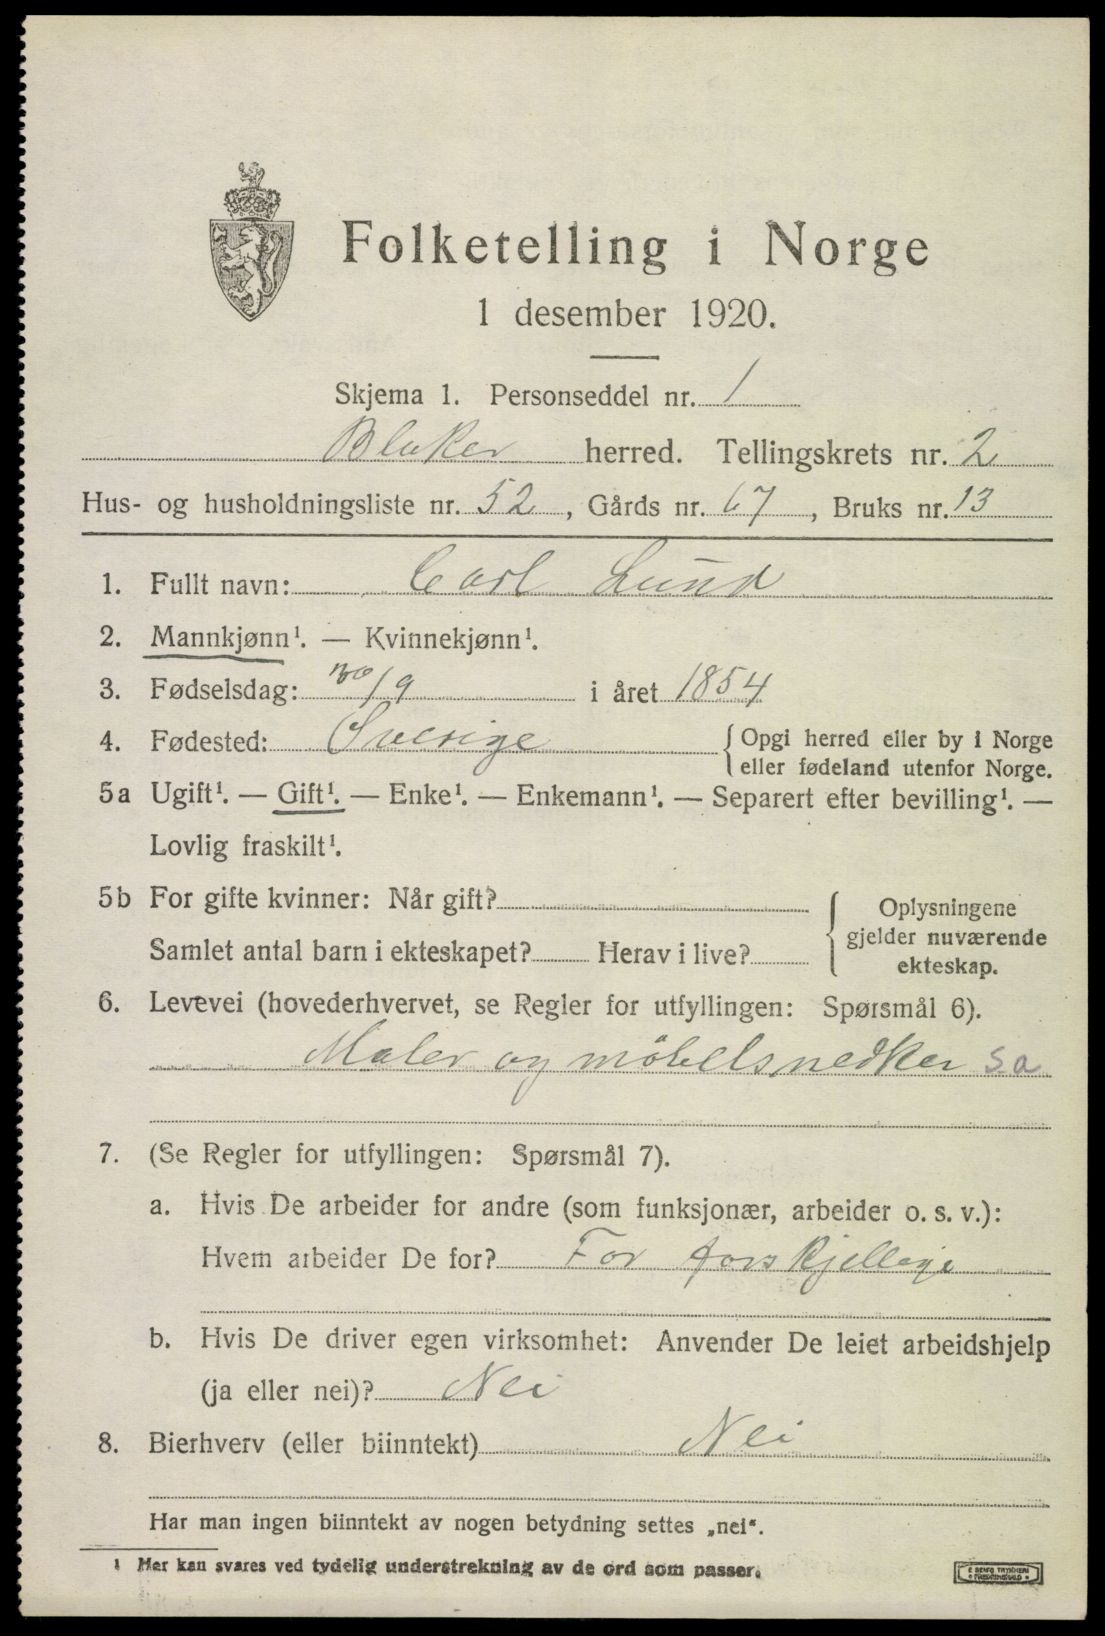 Folketelling i Norge
1 desember 1920.
Skjema 1. Personseddel nr. 1
Blaker herred. Tellingskrets nr. 2
Hus- og husholdningsliste nr. 52, Gårds nr. 67, Bruks nr. 13
1. Fullt navn: Carl Lund
2. Mannkjønn¹. — Kvinnekjønn¹.
3. Fødselsdag: 30/9 i året 1854
4. Fødested: Sverige { Opgi herred eller by i Norge
eller fødeland utenfor Norge.
5a Ugift¹. — Gift¹. — Enke¹. — Enkemann¹. — Separert efter bevilling¹. —
Lovlig fraskilt¹.
5b For gifte kvinner: Når gift?
Samlet antal barn i ekteskapet? Herav i live?
{ Oplysningene
gjelder nuværende
ekteskap.
6. Levevei (hovederhvervet, se Regler for utfyllingen: Spørsmål 6).
Maler og möbelsnedker s.a
7. (Se Regler for utfyllingen: Spørsmål 7).
a. Hvis De arbeider for andre (som funksjonær, arbeider o. s. v.):
Hvem arbeider De for? For forskjellige
b. Hvis De driver egen virksomhet: Anvender De leiet arbeidshjelp
(ja eller nei)? Nei
8. Bierhverv (eller biinntekt) Nei
Har man ingen biinntekt av nogen betydning settes „nei“.
¹ Her kan svares ved tydelig understrekning av de ord som passer.